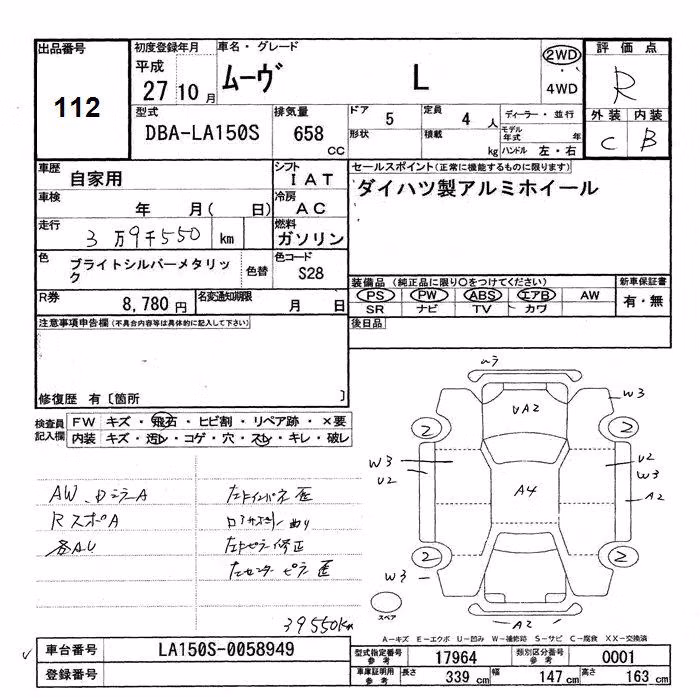 出品番号 初度登録年月 車名・グレード 評価点
112 平成 27 10月 ムーヴ L 2WD 4WD R
型式 排気量 ドア 5 定員 4 人 ディーラー・並行 外装 内装
DBA-LA150S 658 CC 形状 積載 kg モデル年式 年 ハンドル 左・右 C B
車歴 自家用 シフト IAT セールスポイント(正常に機能するものに限ります)
車検 年 月( 日) 冷房 AC ダイハツ製アルミホイール
走行 3万9千550 km 燃料 ガソリン
色 ブライトシルバーメタリック 色替 色コード S28
装備品 (純正品に限り○をつけてください) 新車保証書
R券 8,780円 名変通知期限 月 日 PS PW ABS エアB AW 有・無
SR ナビ TV カワ
注意事項申告欄(不具合内容等は具体的に記入して下さい) 後日品
修復歴 有〔箇所 〕
検査員記入欄 FW キズ・飛石・ヒビ割・リペア跡・×要
内装 キズ・汚レ・コゲ・穴・スレ・キレ・破レ
ムラ
W3
UA2
2 2
W3 U2
U2 W3
A4 A2
2 2
W3
スペア
A2
AW、
RスポA
各AU
39550km
A-キズ E-エクボ U-凹み W-補修跡 S-サビ C-腐食 XX-交換済
車台番号 LA150S-0058949 型式指定番号 参考 17964 類別区分番号 参考 0001
登録番号 車庫証明用 参考 長さ 339 cm 幅 147 cm 高さ 163 cm